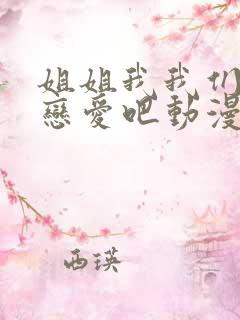 姐姐我我们
恋爱吧動漫
西瑛